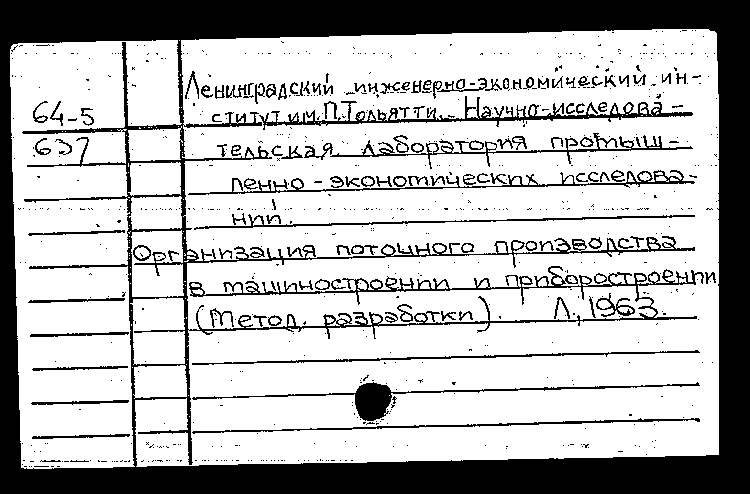 Ленинградский инженерно-экономический ин-
64-5 ститут им. П. Тольятти. Научно-исследова-
637 тельская лаборатория промыш-
ленно-экономических исследова-
ний.
Организация поточного производства
в машиностроении и приборостроении
(Метод. разработки). Л., 1963.